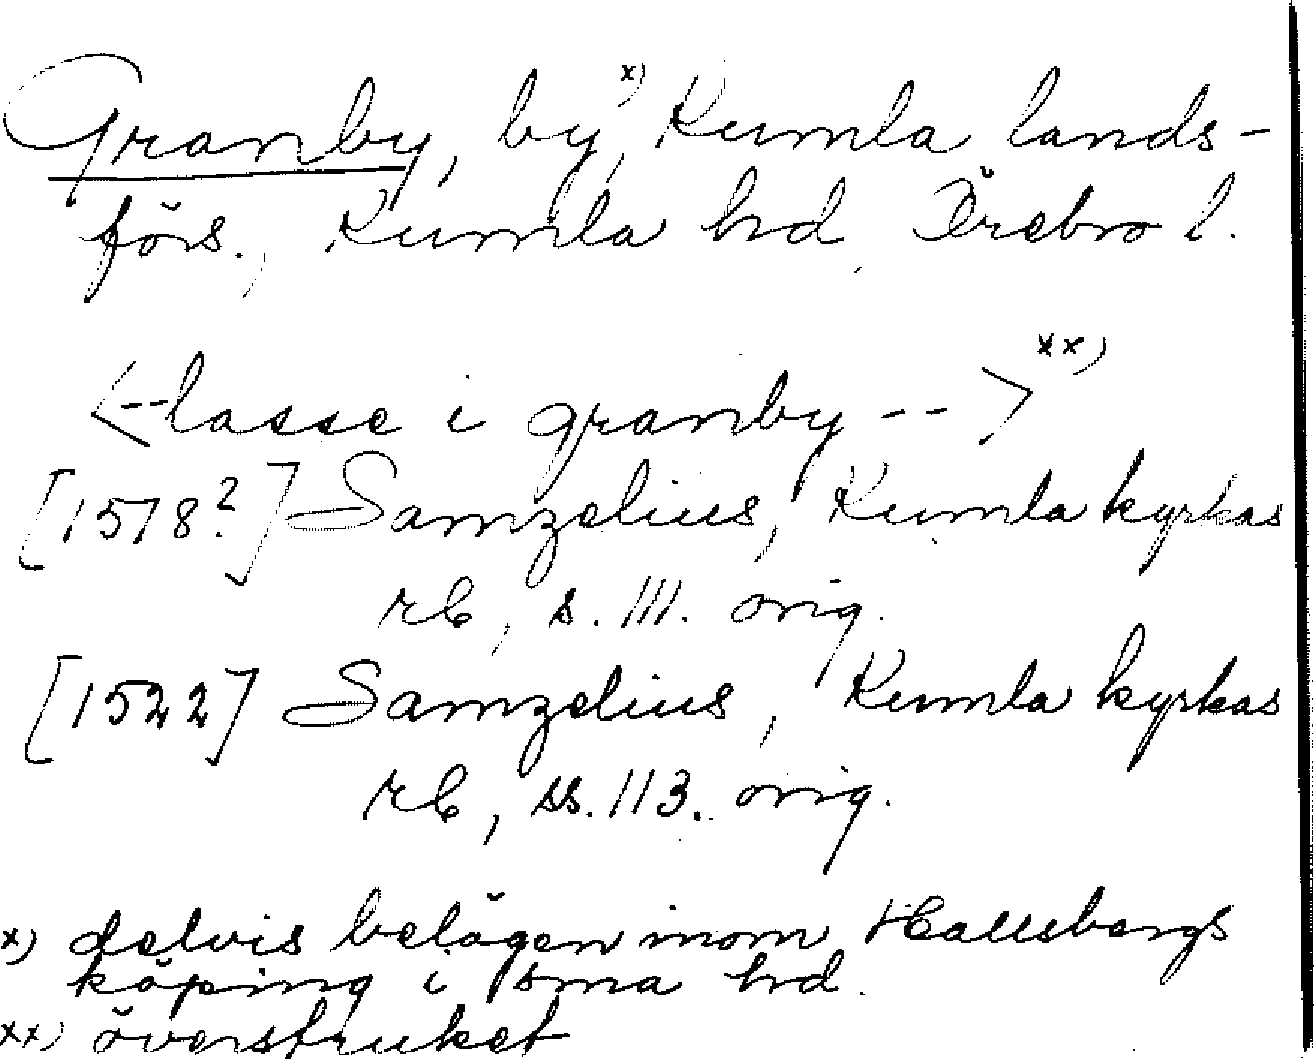 Granby, by, x) Kumla lands-
förs., Kumla hd, Örebro l.
<--lasse i granby -- > xx)
[1578?] Samzelius, Kumla kyrkas
rb, s. 111. orig.
[1522] Samzelius, Kumla kyrkas
rb, ss. 113. orig.
x) delvis belägen inom Hallsbergs
köping i sma hd.
xx) överstruket